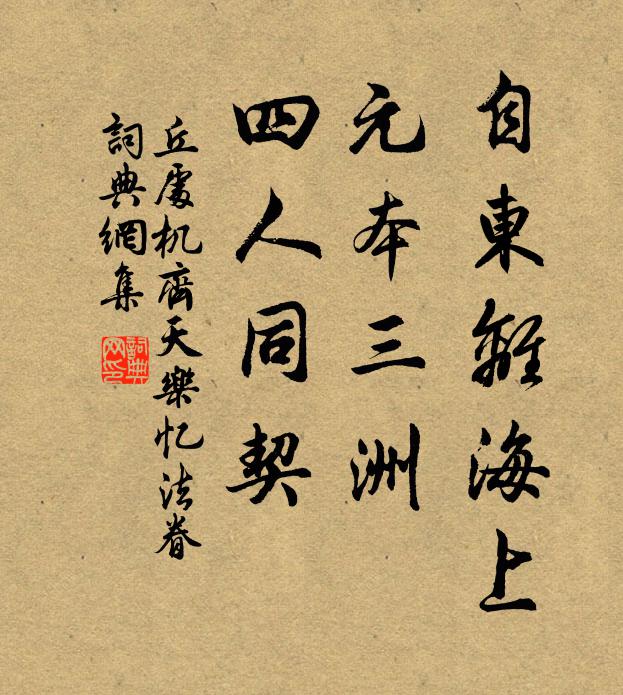 自東離海上
元本三洲
四人同契
丘處机齊天樂忆法眷
詞典網集
詞典網印